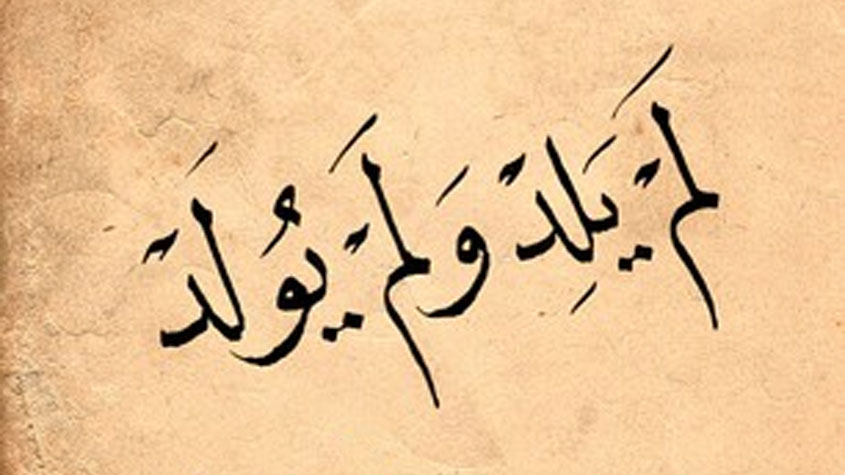 لَمْ يَلِدْ وَلَمْ يُولَدْ